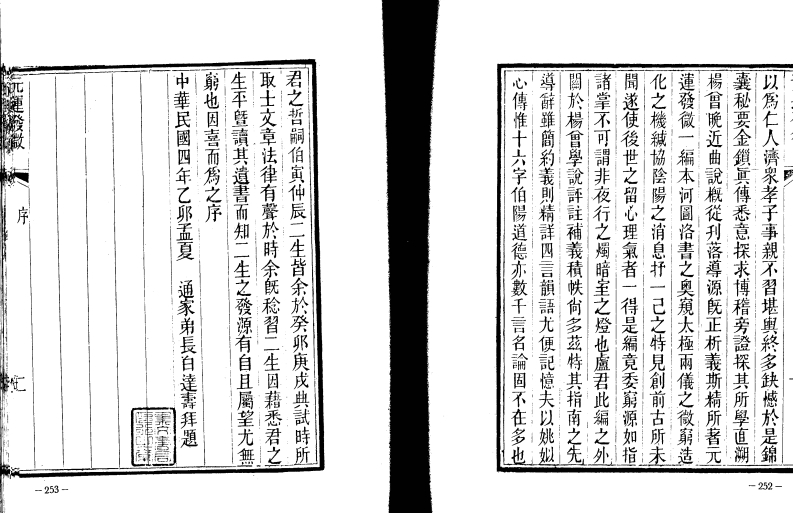 以爲仁人濟衆孝子事親不習堪輿終多缺憾於是錦
囊秘要金鎖眞傳悉意探求博稽旁證探其所學直溯
楊曾晚近曲說概從刋落導源旣正析義斯精所著元
運發微一編本河圖洛書之奥窺太極兩儀之微窮造
化之機緘協陰陽之消息抒一己之特見創前古所未
聞遂使後世之留心理氣者一得是編竟委窮源如指
諸掌不可謂非夜行之燭暗室之燈也盧君此編之外
關於楊曾學說詳註補義積帙尙多茲特其指南之先
導辭雖簡約義則精詳四言韻語尤便記憶夫以姚姒
心傳惟十六字伯陽道德亦數千言名論固不在多也
－252－
君之哲嗣伯寅仲辰二生皆余於癸卯庚戌典試時所
取士文章法律有聲於時余旣稔習二生因藉悉君之
生平曁讀其遺書而知二生之發源有自且屬望尤無
窮也因喜而爲之序
中華民國四年乙卯孟夏　通家弟長白達壽拜題
元運發微
序
－253－